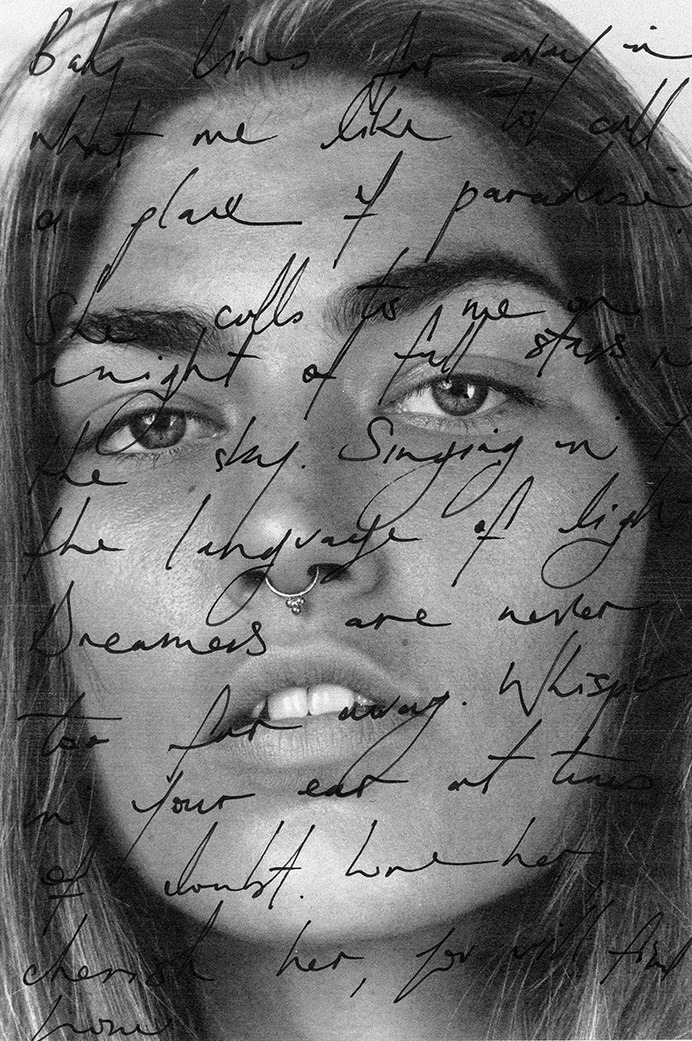 Baby lives far away in
what me like to call
a place of paradise.
She calls to me on
a night of full stars in
the sky. Singing in
the language of light
Dreamers are never
too far away. Whisper
in your ear at times
of doubt. her
cherish her, for will find
home